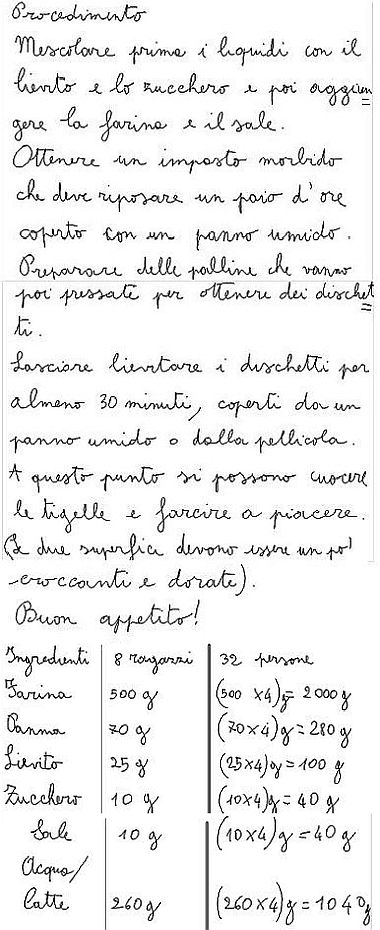 Procedimento
Mescolare prima i liquidi con il
lievito e lo zucchero e poi aggiun
gere la farina e il sale.
Ottenere un impasto morbido
che deve riposare un paio d'ore
coperto con un panno umido.
Preparare delle palline che vanno
poi pressate per ottenere dei dischet
ti.
Lasciare lievitare i dischetti per
almeno 30 minuti, coperti da un
panno umido o dalla pellicola.
A questo punto si possono cuocere
le tigelle e farcire a piacere.
(Le due superfici devono essere un po'
croccanti e dorate).
Buon appetito!
Ingredienti 8 ragazzi 32 persone
Farina 500 g (500 x4)g= 2000g
Panna 70 g (70x4)g=280g
Lievito 25 g (25x4)g=100 g
Zucchero 10 g (10x4)g=40 g
Sale 10 g (10x4)g=40g
Acqua/
latte 260g (260x4)g=1040g